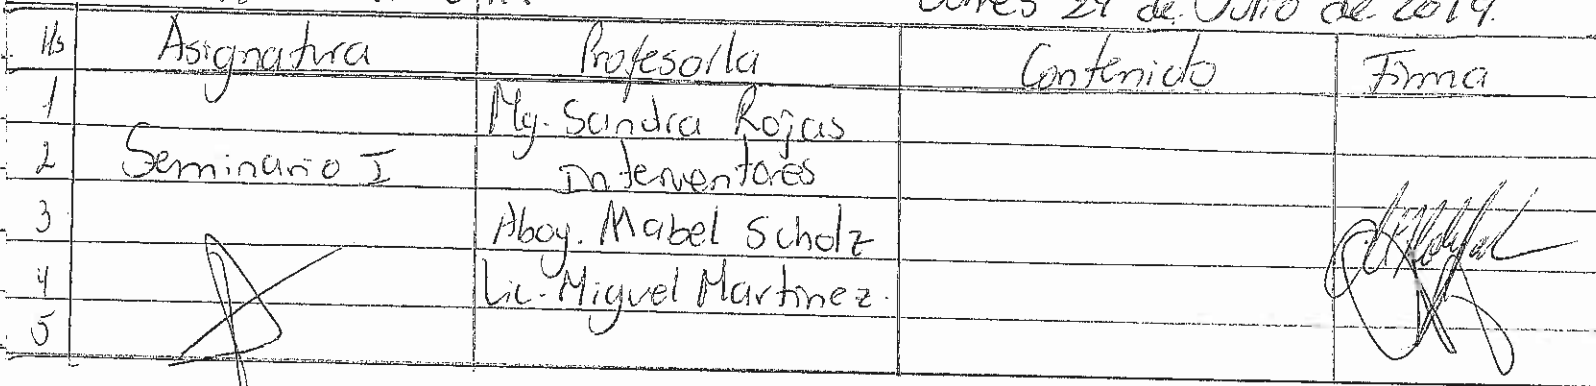 de Julio de 2019.
Hs Asignatura Profesor/la Contenido Firma
1 Mg. Sandra Rojas
2 Seminario I Interventores
3 Abog. Mabel Scholz
4 Lic. Miguel Martinez.
5